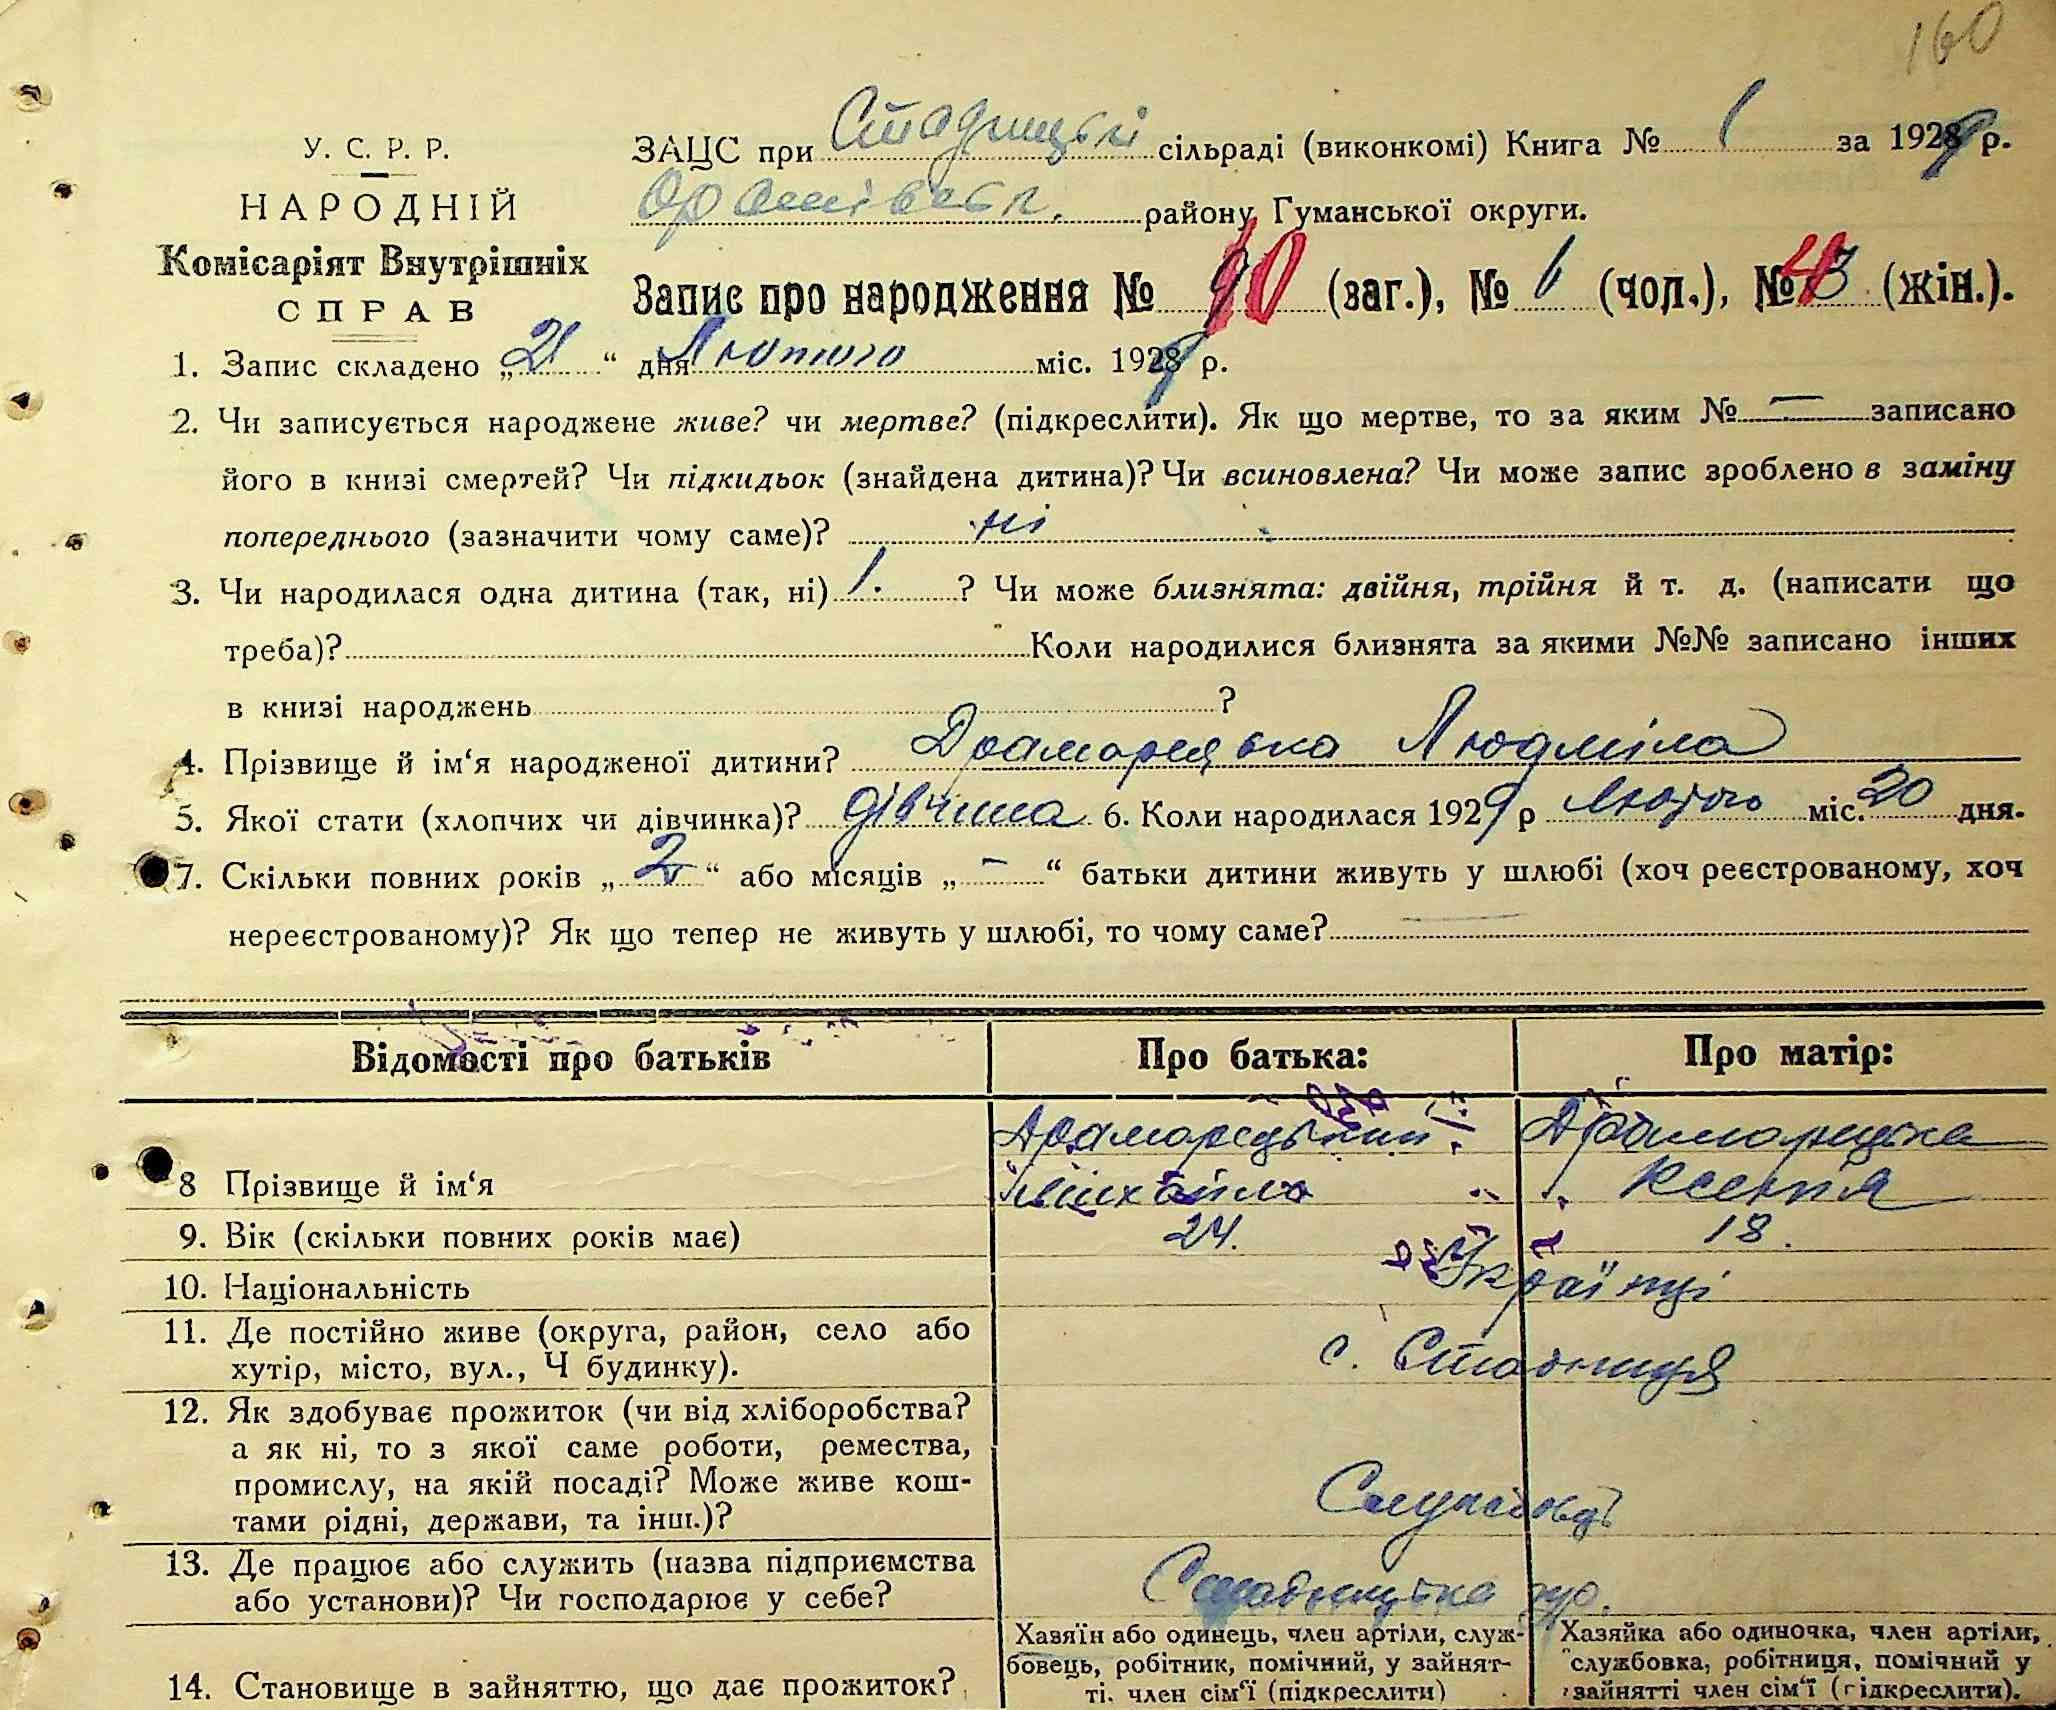 160
У. С. Р. Р.
НАРОДНІЙ
Комісаріят Внутрішніх
СПРАВ
ЗАЦС при Стадницькі сільраді (виконкомі) Книга № 1 за 1929 р.
району Гуманської округи.
Запис про народження № 10 (заг.), № 6 (чол.), № 4 (жін.).
1. Запис складено „21“ дня Лютого міс. 1929 р.
2. Чи записується народжене живе? чи мертве? (підкреслити). Як що мертве, то за яким № — записано
його в книзі смертей? Чи підкидьок (знайдена дитина)? Чи всиновлена? Чи може запис зроблено в заміну
попереднього (зазначити чому саме)? ні
3. Чи народилася одна дитина (так, ні) 1. ? Чи може близнята: двійня, трійня й т. д. (написати що
треба)? Коли народилися близнята за якими №№ записано інших
в книзі народжень ?
4. Прізвище й ім‘я народженої дитини? Драморецька Людміла
5. Якої стати (хлопчих чи дівчинка)? дівчина 6. Коли народилася 1929 р Лютого міс. 20 дня.
7. Скільки повних років „2“ або місяців „-“ батьки дитини живуть у шлюбі (хоч реєстрованому, хоч
нереєстрованому)? Як що тепер не живуть у шлюбі, то чому саме? —
Відомості про батьків Про батька: Про матір:
Драморецький Драморецька
8 Прізвище й ім‘я Михайло Ксенія
9. Вік (скільки повних років має) 24. 18.
10. Національність Українці
11. Де постійно живе (округа, район, село або
хутір, місто, вул., Ч будинку). с. Стадниця
12. Як здобуває прожиток (чи від хліборобства?
а як ні, то з якої саме роботи, ремества,
промислу, на якій посаді? Може живе кош-
тами рідні, держави, та інш.)?
13. Де працює або служить (назва підприємства
або установи)? Чи господарює у себе? Стадницька
14. Становище в зайняттю, що дає прожиток?
Хазяїн або одинець, член артіли, служ-
бовець, робітник, помічний, у зайнят-
ті. член сім‘ї (підкреслити)
Хазяйка або одиночка, член артіли,
службовка, робітниця, помічний у
зайнятті член сім‘ї (підкреслити).